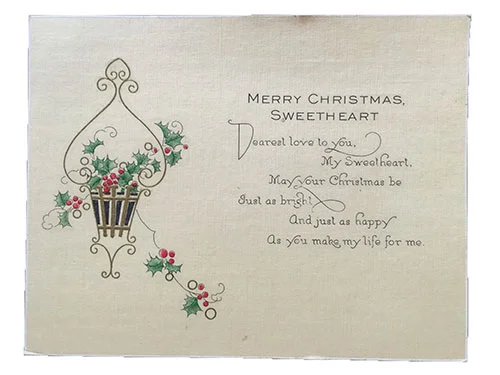 MERRY CHRISTMAS,
SWEETHEART
Dearest love to you,
My Sweetheart,
May your Christmas be
Just as bright
And just as happy
As you make my life for me.